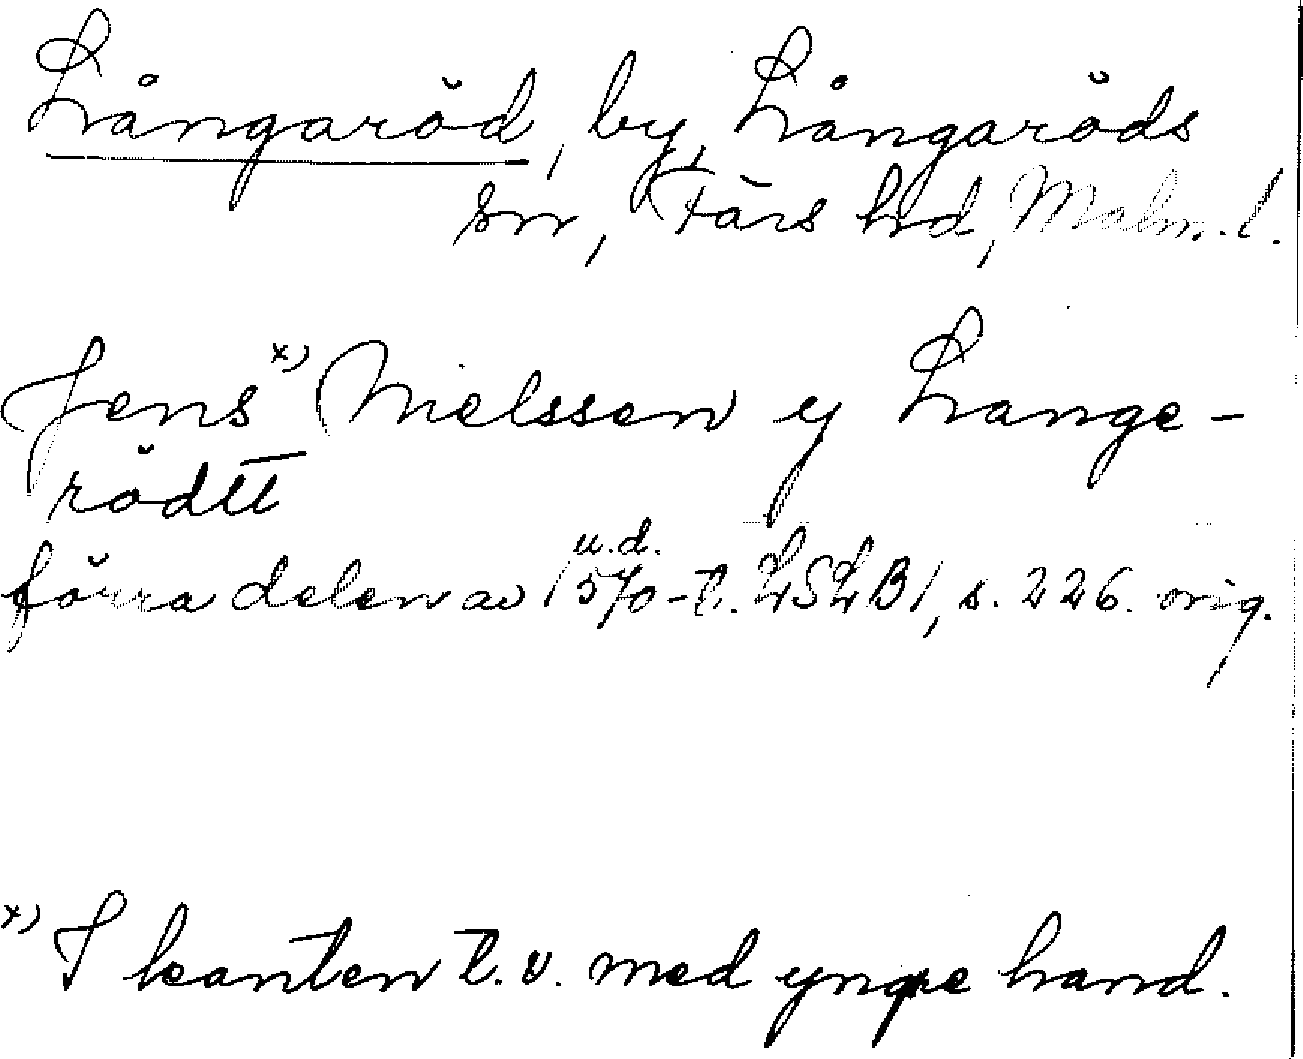 Långaröd, by, Långaröds
sn, Färs hd, Malm. l.
Jens x) Nielssen y Lange-
rödtt
u.d.
förra delen av 1570-t. LSLB1, s. 226. orig.
x) I kanten t.v. med yngre hand.